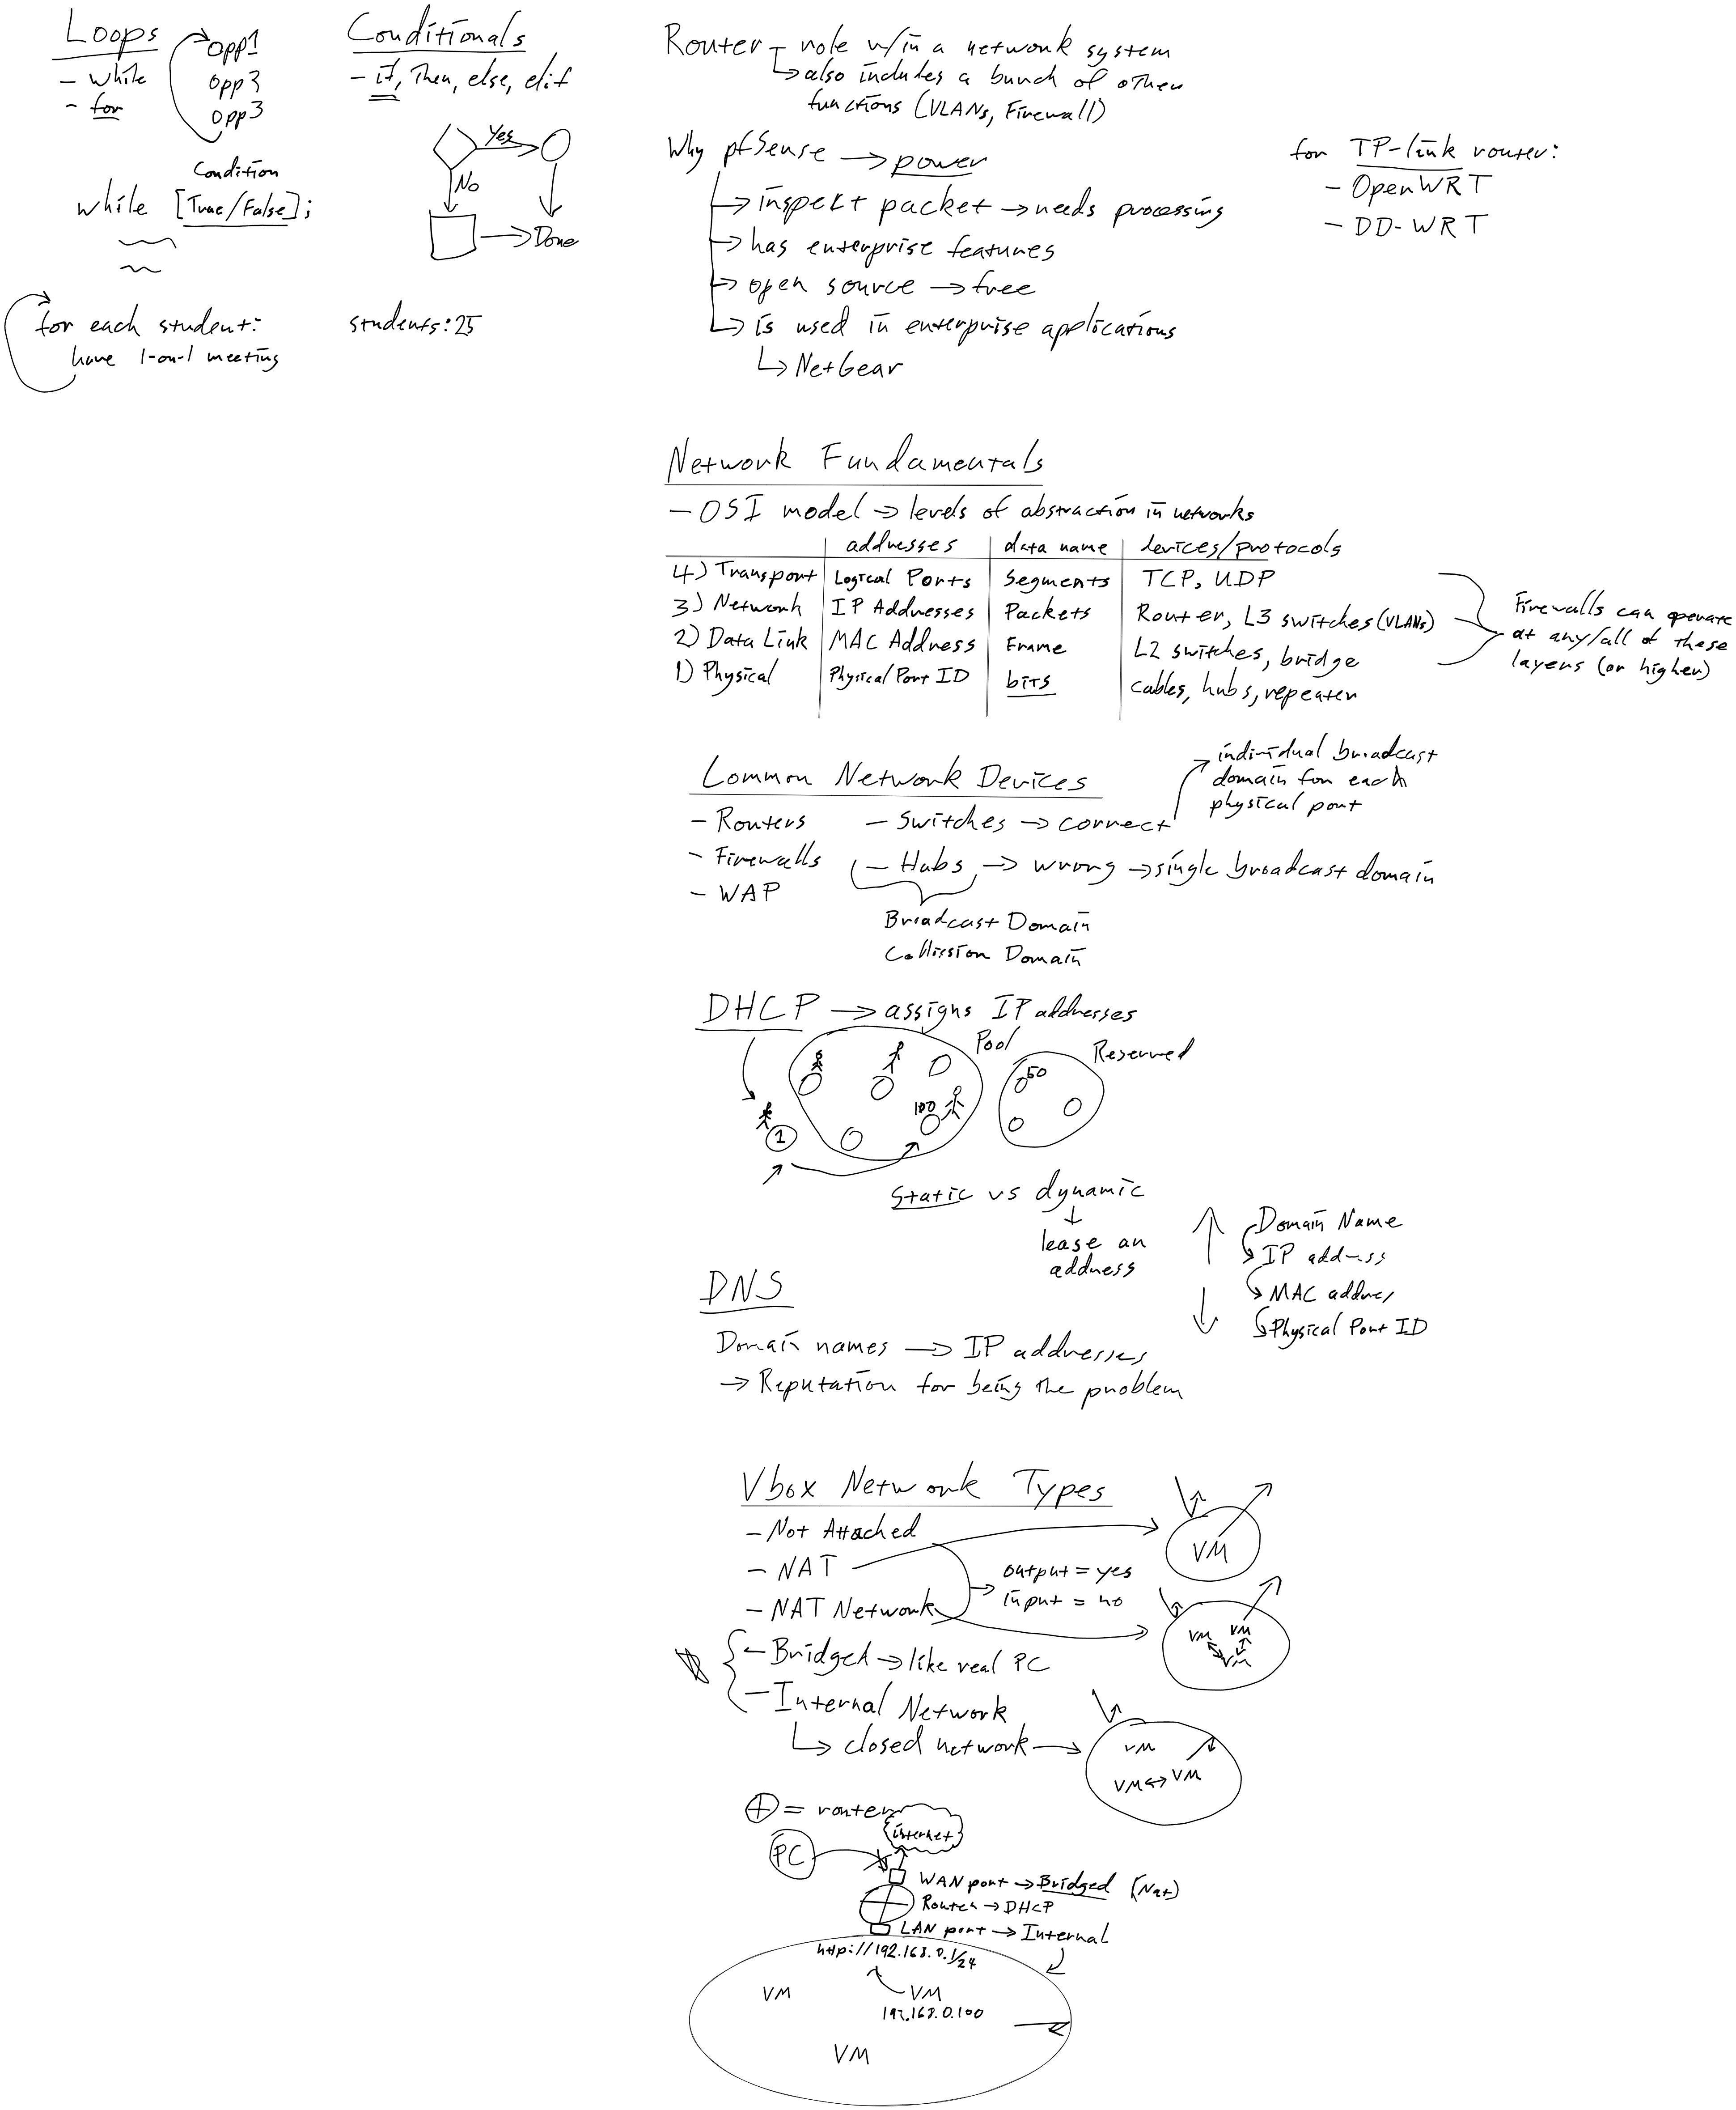 Loops
- while
- for
opp1
opp3
opp3
Condition
while [True/False];
for each student:
have 1-on-1 meeting
Conditionals
- if, then, else, elif
Yes
No
Done
students: 25
Router - role w/in a network system
also includes a bunch of other
functions (VLANs, Firewall)
Why pfSense → power
→ inspect packet → needs processing
→ has enterprise features
→ open source → free
→ is used in enterprise applications
→ NetGear
for TP-link router:
- OpenWRT
- DD-WRT
Network Fundamentals
- OSI model → levels of abstraction in networks
addresses data name devices/protocols
4) Transport Logical Ports Segments TCP, UDP
3) Network IP Addresses Packets Router, L3 switches (VLANs)
2) Data Link MAC Address Frame L2 switches, bridge
1) Physical Physical Port ID bits cables, hubs, repeater
Firewalls can operate
at any/all of these
layers (or higher)
Common Network Devices
- Routers
- Firewalls
- WAP
- Switches → correct
individual broadcast
domain for each
physical port
- Hubs → wrong → single broadcast domain
Broadcast Domain
Collission Domain
DHCP → assigns IP addresses
Pool
Reserved
50
100
1
Static vs dynamic
lease an
address
Domain Name
IP address
MAC address
Physical Port ID
DNS
Domain names → IP addresses
→ Reputation for being the problem
Vbox Network Types
- Not Attached
- NAT
- NAT Network
output = yes
input = no
- Bridged → like real PC
- Internal Network
→ closed network →
VM
VM VM
VM
VM
VM ↔ VM
⊕ = router
internet
PC
WAN port → Bridged (Nat)
Router → DHCP
LAN port → Internal
http://192.168.0.1/24
VM VM
192.168.0.100
VM